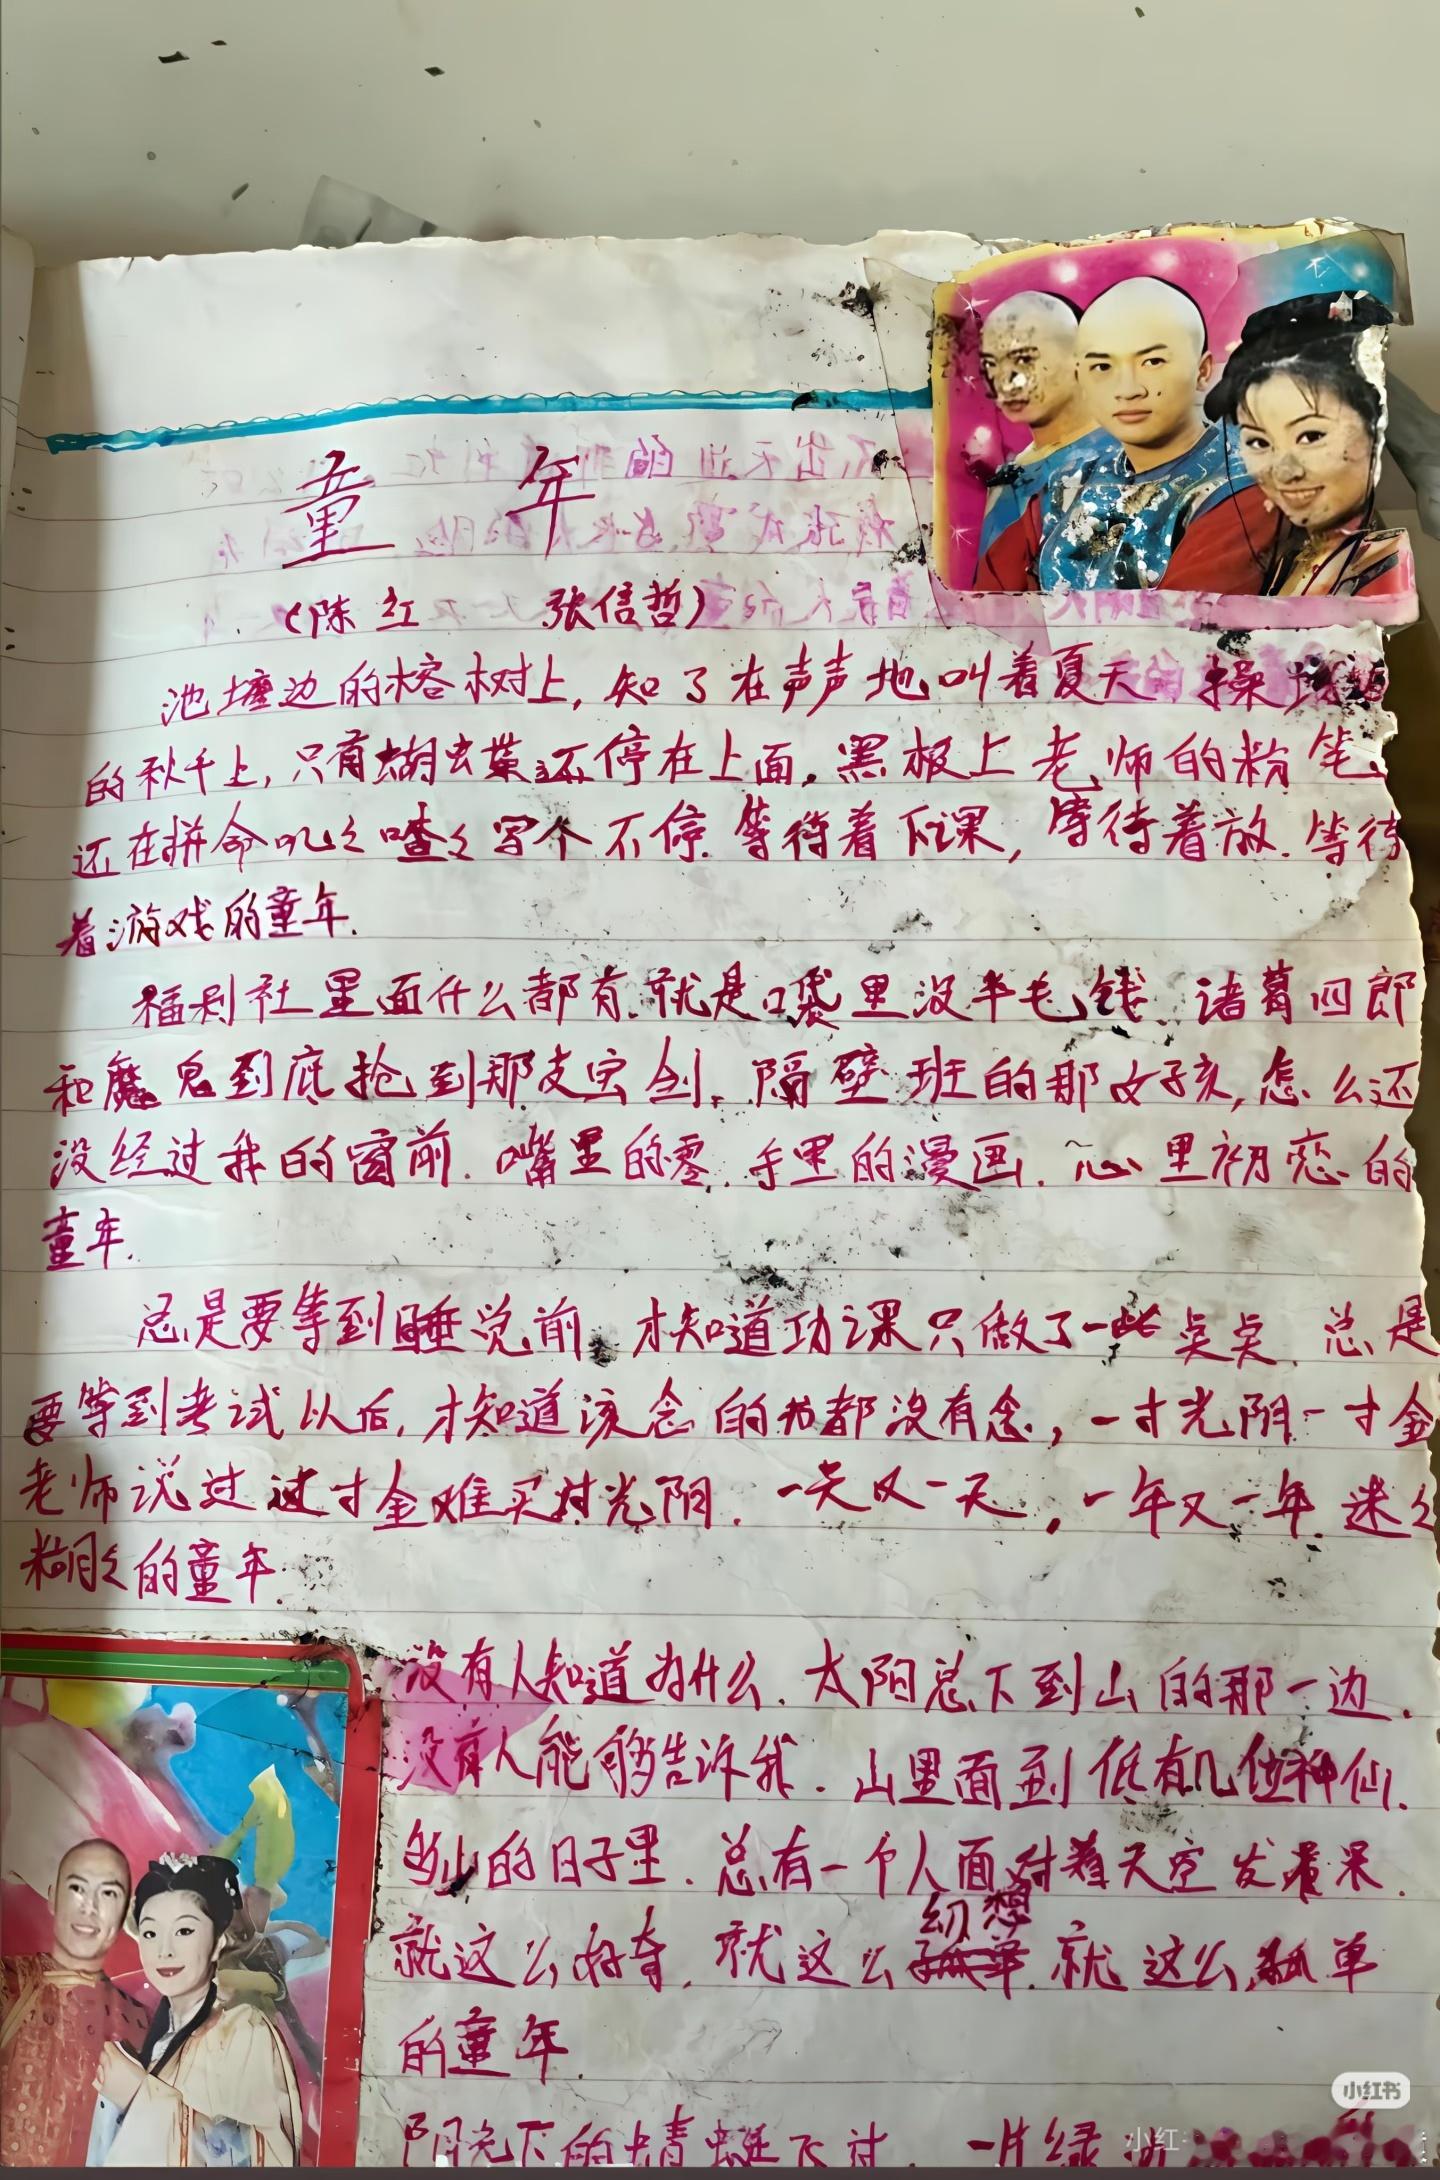 童年
（陈红 张信哲）
池塘边的榕树上，知了在声声地叫着夏天 操场边
的秋千上，只有蝴虫蝶还停在上面。黑板上老师的粉笔
还在拼命叽々喳々写个不停.等待着下课，等待着放.等待
着游戏的童年.
福利社里面什么都有.就是口袋里没半毛钱 诸葛四郎
和魔鬼到底抢到那支宝剑.隔壁班的那女孩,怎么还
没经过我的窗前.嘴里的零.手里的漫画.心里初恋的
童年.
总是要等到睡觉前.才知道功课只做了一些点点.总是
要等到考试以后,才知道该念的书都没有念，一寸光阴一寸金
老师说过过寸金难买寸光阴.一天又一天，一年又一年.迷々
糊々的童年.
没有人知道为什么.太阳总下到山的那一边.
没有人能够告诉我.山里面到低有几位神仙.
多山的日子里.总有一个人面对着天空发着呆.
幻想
就这么好奇.就这么 就这么孤单
的童年
阳光下的蜻蜓飞过.一片绿
小红书
小红